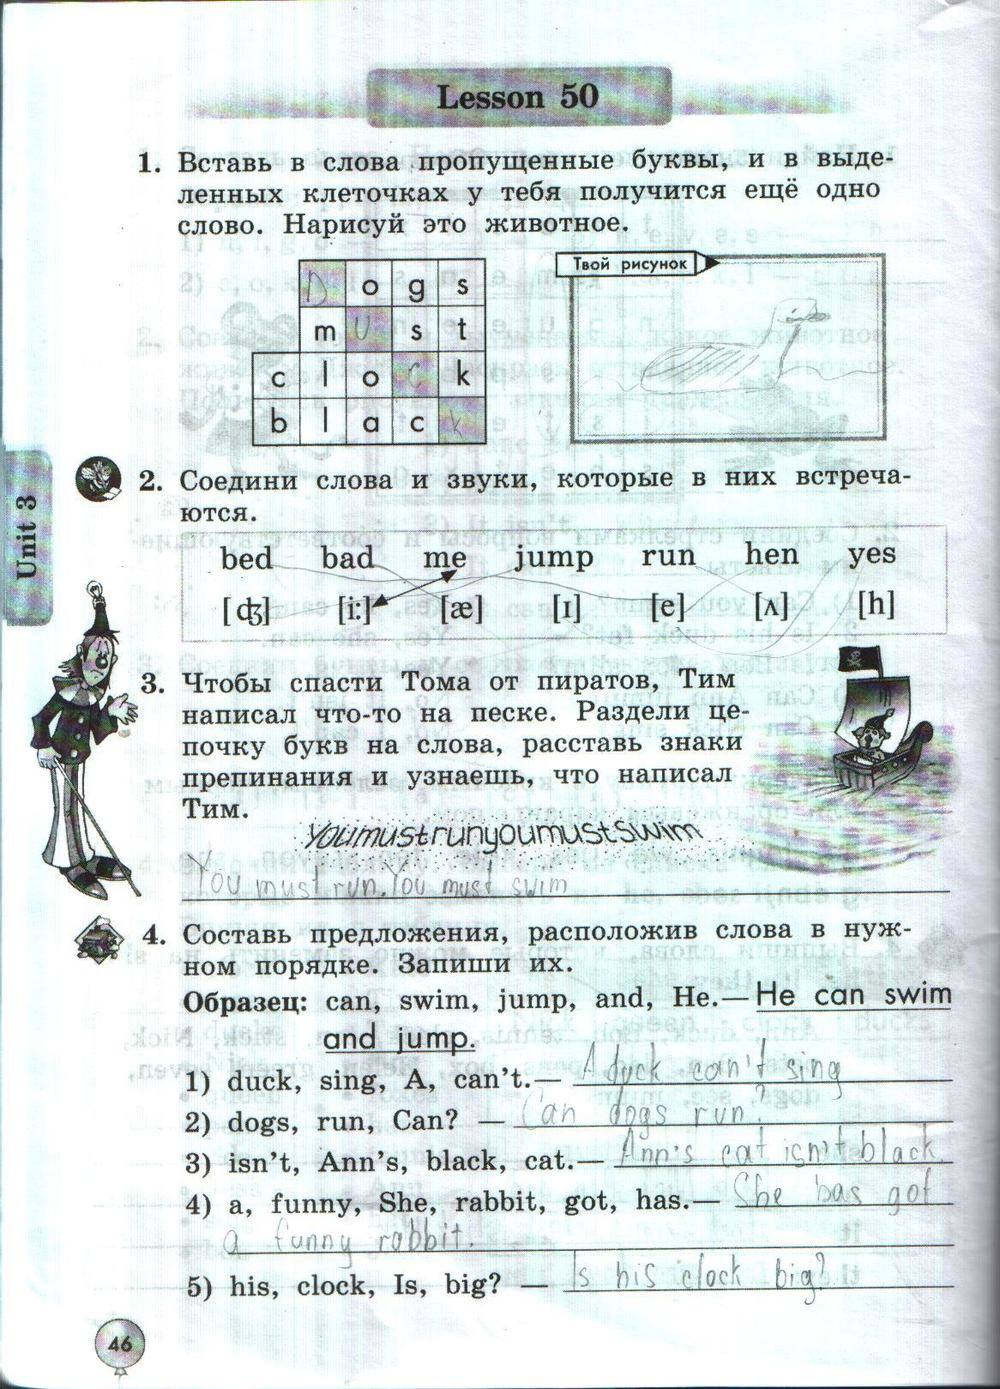 Lesson 50
1. Вставь в слова пропущенные буквы, и в выде-
ленных клеточках у тебя получится ещё одно
слово. Нарисуй это животное.
D o g s
m U s t
c l o c k
b l a c k
Твой рисунок
Unit 3
2. Соедини слова и звуки, которые в них встреча-
ются.
bed bad me jump run hen yes
[ʤ] [i:] [æ] [ɪ] [e] [ʌ] [h]
3. Чтобы спасти Тома от пиратов, Тим
написал что-то на песке. Раздели це-
почку букв на слова, расставь знаки
препинания и узнаешь, что написал
Тим.
Youmustrunyoumustswim
You must run. You must swim
4. Составь предложения, расположив слова в нуж-
ном порядке. Запиши их.
Образец: can, swim, jump, and, He.— He can swim
and jump.
1) duck, sing, A, can't.— A duck can't sing
2) dogs, run, Can? — Can dogs run?
3) isn't, Ann's, black, cat.— Ann's cat isn't black
4) a, funny, She, rabbit, got, has.— She has got
a funny rabbit.
5) his, clock, Is, big? — Is his clock big?
46